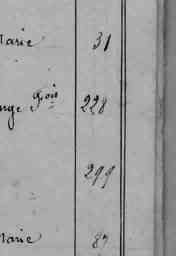 Marie 31
ange fois 228
299
Marie 87